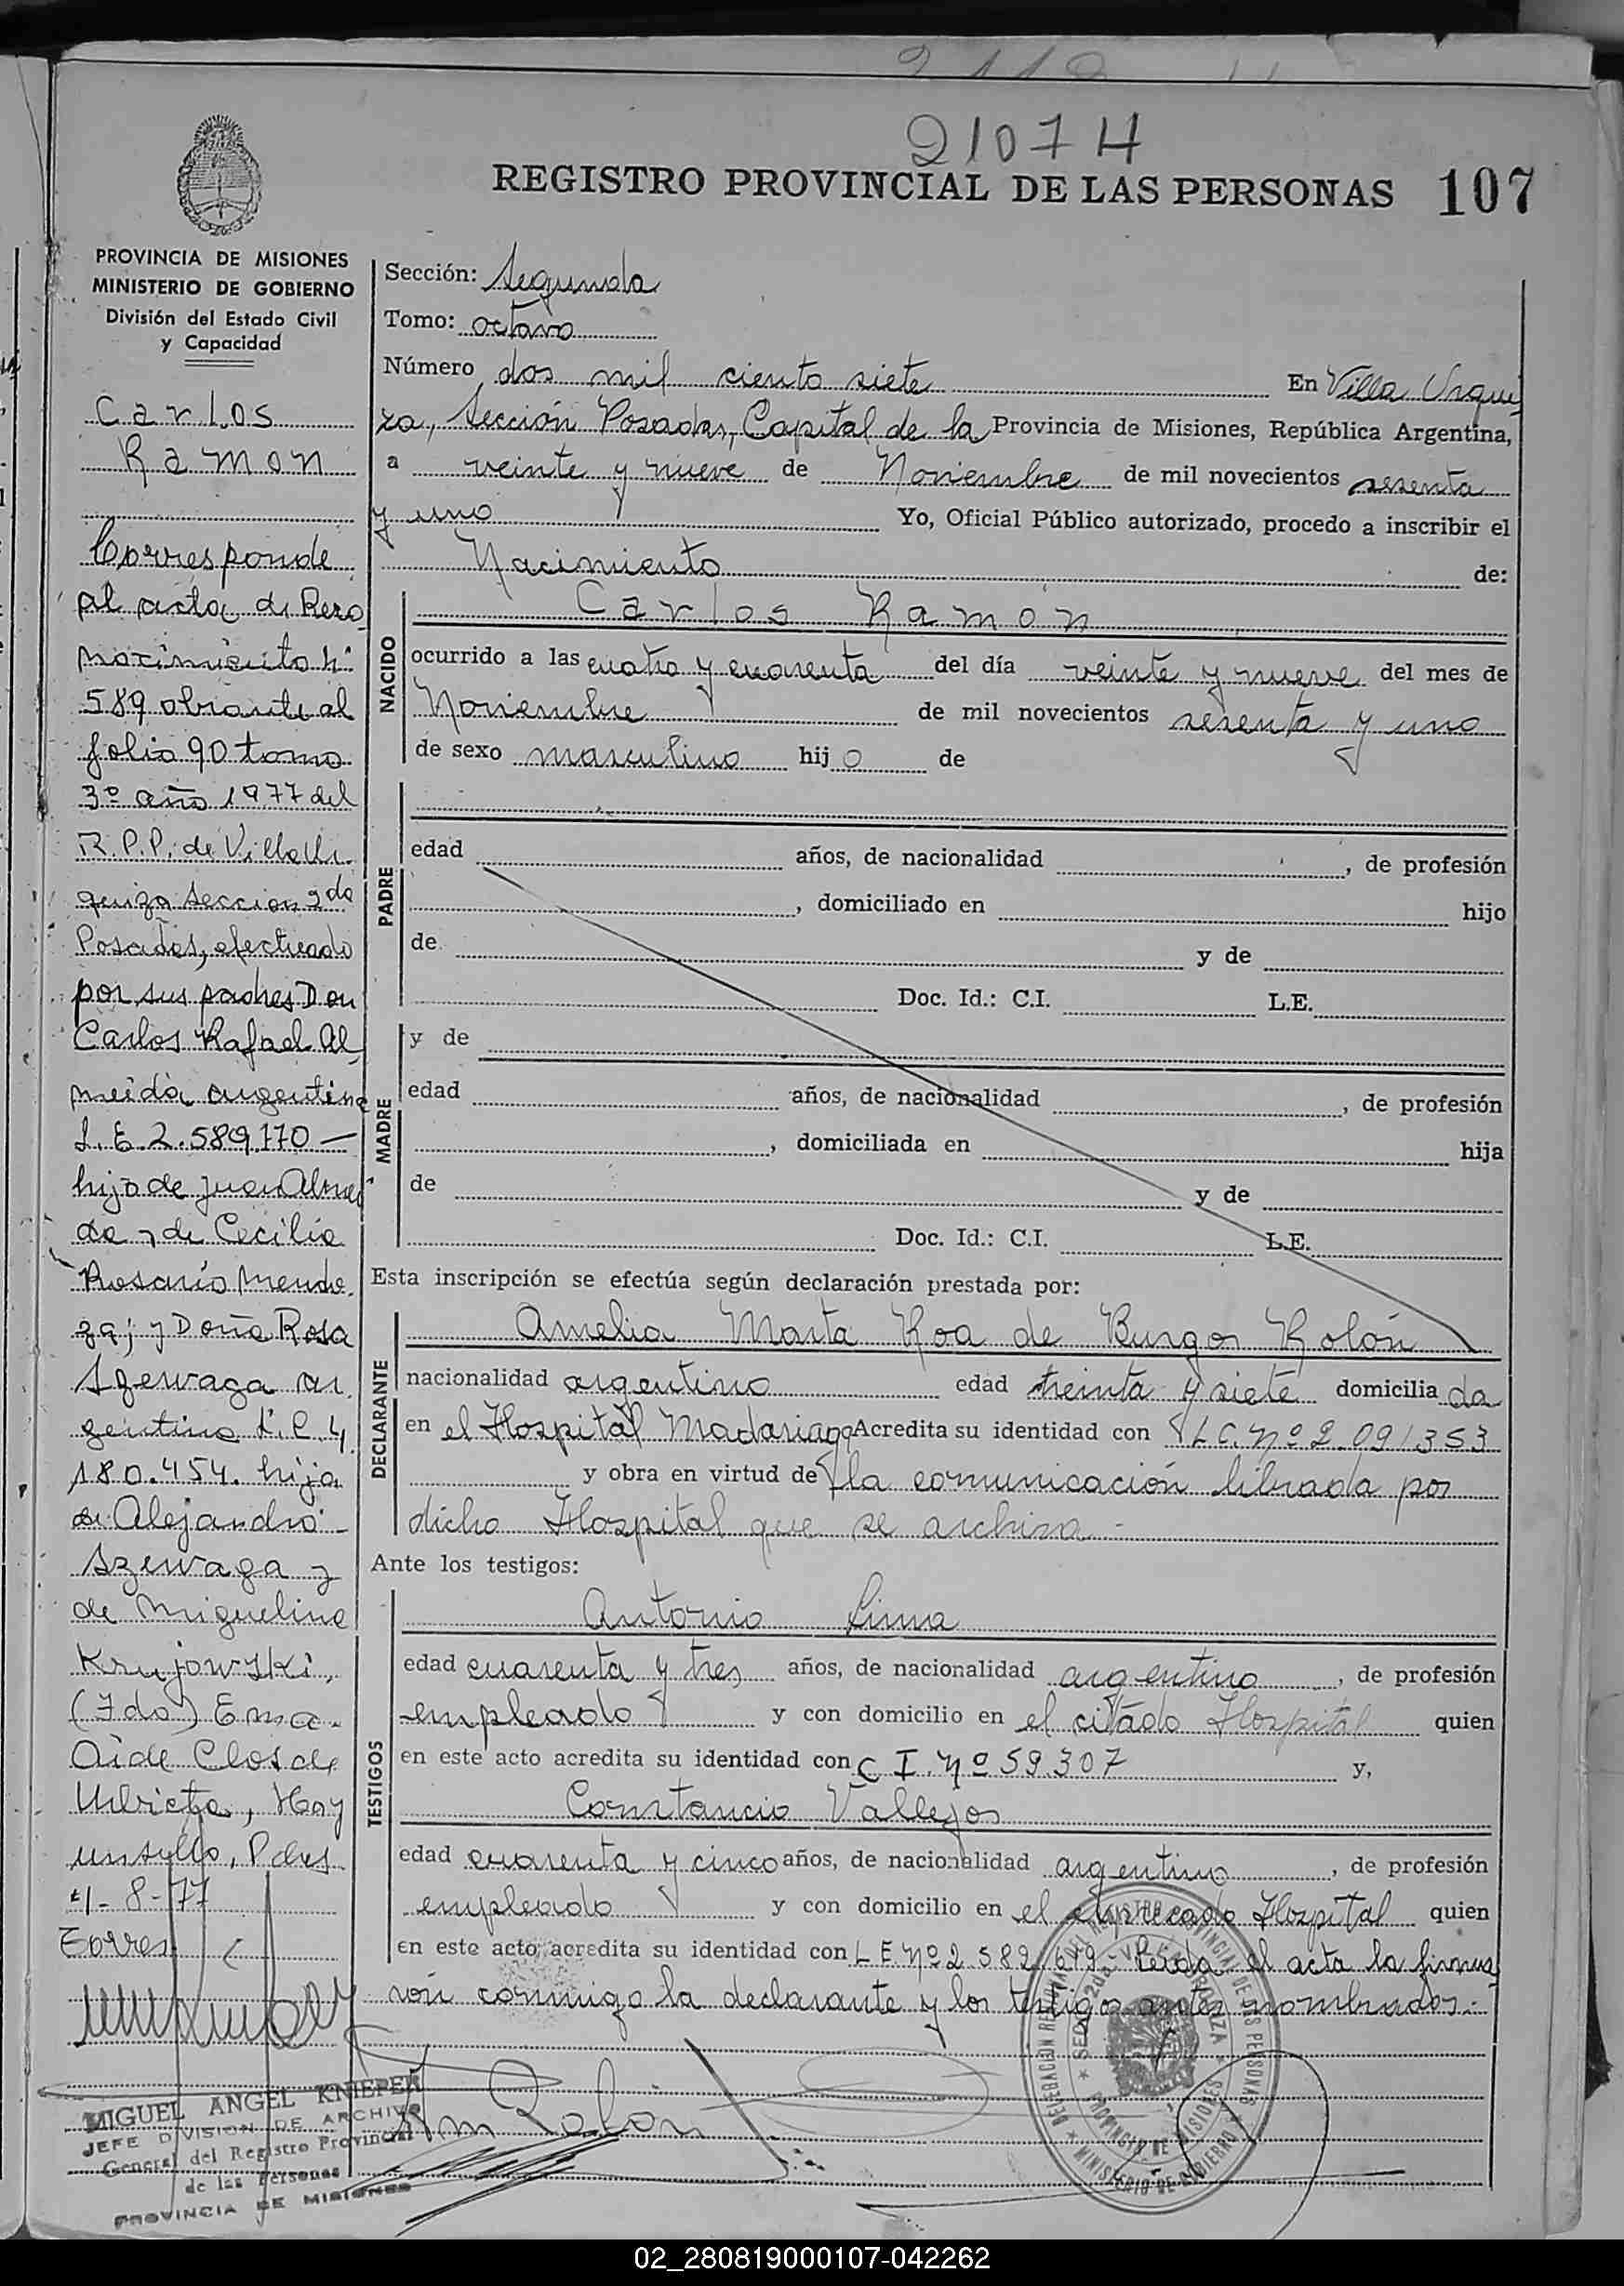 2107 H
REGISTRO PROVINCIAL DE LAS PERSONAS 107
PROVINCIA DE MISIONES
MINISTERIO DE GOBIERNO
División del Estado Civil
y Capacidad
Carlos
Ramon
Corresponde
al acta de Reco
nocimiento Nº
589 obrante al
folio 90 tomo
3º año 1977 del
R.P.P. de Villa Ur
quiza Seccion 2da
Posadas, efectuado
por sus padres Don
Carlos Rafael Al
meida argentino
L.E. 2.589.170 —
hijo de Juan Almei
da y de Cecilia
Rosario Mendo
za; y Doña Rosa
Azewaga ar
gentina L.C. 4.
180.454. hija
de Alejandro
Azewaga y
de Miguelina
Krujowski,
(Fdo) Ema
Aide Closs de
Urrieta, Hay
un sello, Pdas
-8-77
Torres
MIGUEL ANGEL KNIEPER
JEFE DIVISION DE ARCHIVO
General del Registro Provincial
de las Personas
PROVINCIA DE MISIONES
Sección: Segunda
Tomo: octavo
Número dos mil ciento siete En Villa Urqui
za, Sección Posadas, Capital de la Provincia de Misiones, República Argentina,
a veinte y nueve de Noviembre de mil novecientos sesenta
y uno Yo, Oficial Público autorizado, procedo a inscribir el
Nacimiento de:
NACIDO
Carlos Ramón
ocurrido a las cuatro y cuarenta del día veinte y nueve del mes de
Noviembre de mil novecientos sesenta y uno
de sexo masculino hijo de
PADRE
edad años, de nacionalidad , de profesión
, domiciliado en hijo
de y de
Doc. Id.: C.I. L.E.
MADRE
y de
edad años, de nacionalidad , de profesión
, domiciliada en hija
de y de
Doc. Id.: C.I. L.E.
Esta inscripción se efectúa según declaración prestada por:
DECLARANTE
Amelia Marta Roa de Burgos Rolón
nacionalidad argentino edad treinta y siete domiciliada
en el Hospital Madariaga Acredita su identidad con L C. Nº 2.091353
y obra en virtud de la comunicación librada por
dicho Hospital que se archiva.-
Ante los testigos:
TESTIGOS
Antonio Lima
edad cuarenta y tres años, de nacionalidad argentino, de profesión
empleado y con domicilio en el citado Hospital quien
en este acto acredita su identidad con C I. Nº 59.307 y,
Constancio Vallejos
edad cuarenta y cinco años, de nacionalidad argentino, de profesión
empleado y con domicilio en el expresado Hospital quien
en este acto acredita su identidad con L E Nº 2 582 679 - Leida el acta la firma
ron conmigo la declarante y los testigos antes nombrados.-
Am Rolón
02_280819000107-042262